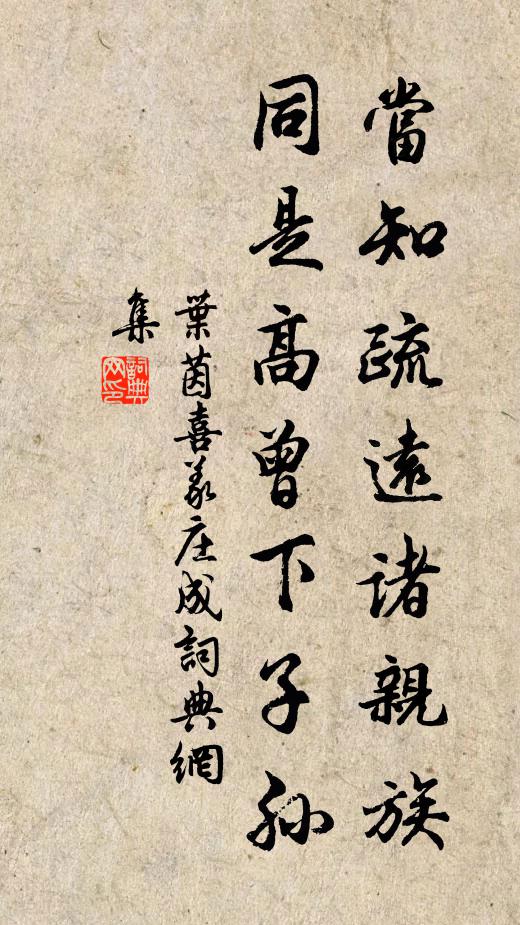 當知疏遠諸親族
同是高曾下子孫
葉茵喜義庄成詞典網
集
詞典
网印